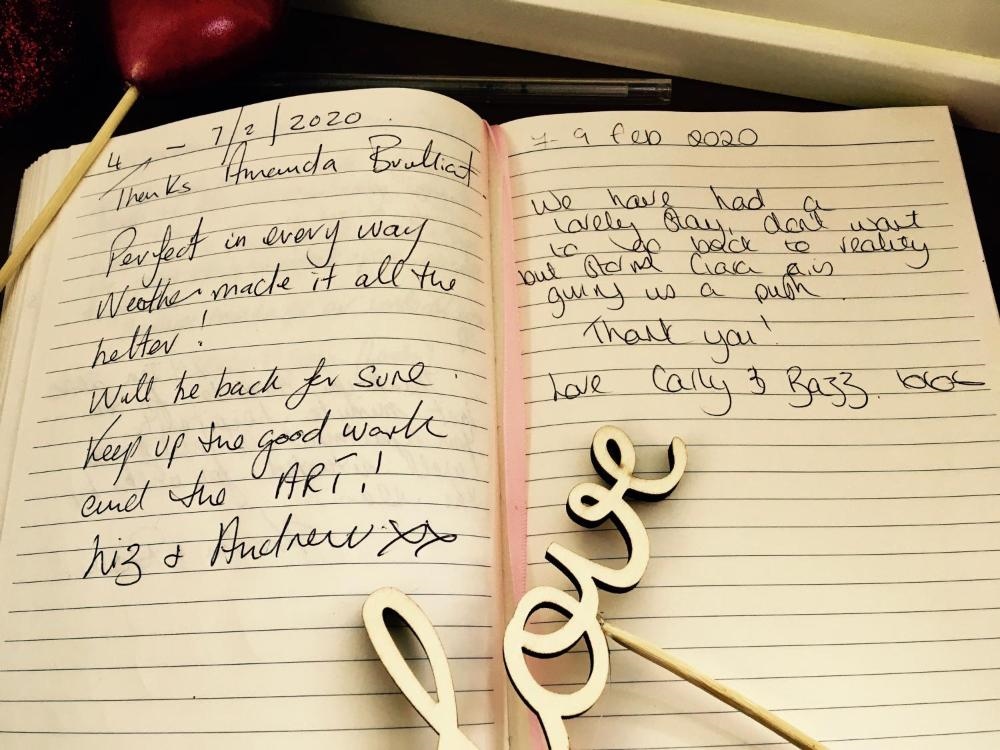 4 - 7/2/2020.
Thanks Amanda Brilliant
Perfect in every way
Weather made it all the
better!
Will be back for sure.
Keep up the good work
and the ART!
Liz & Andrew xx
7-9 Feb 2020
We have had a
lovely stay, don't want
to go back to reality
but Storm Ciara is
giving us a push
Thank you!
Love Carly & Bazz.
love